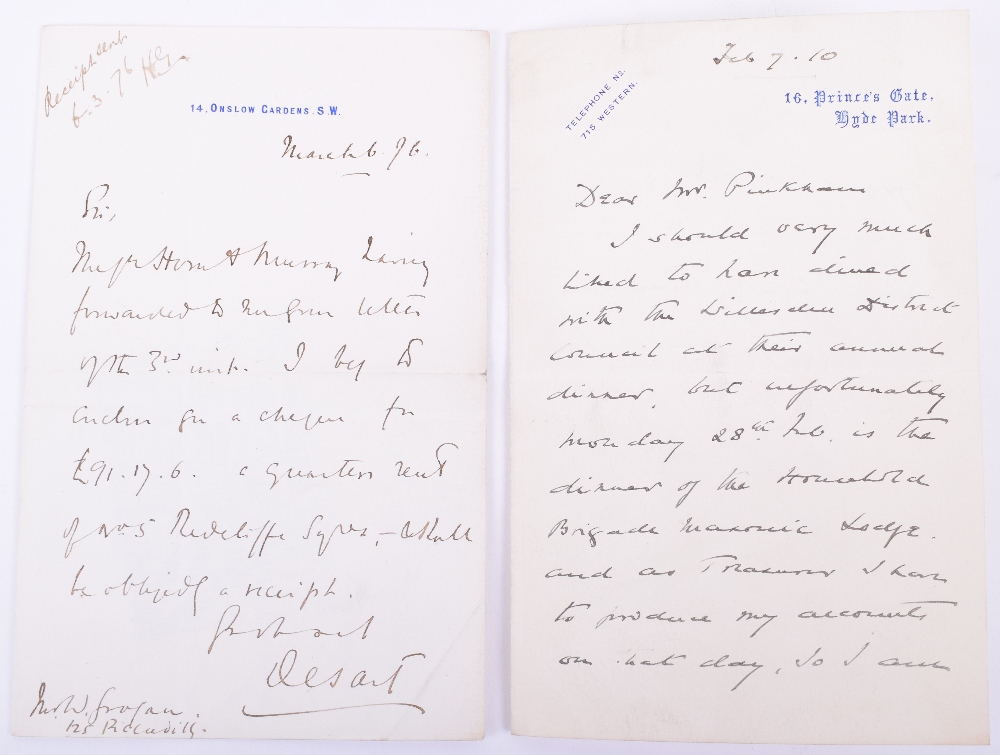 Receipt sent
6.3.76 HG.
14, ONSLOW GARDENS. S.W.
March 6. 76.
Sir,
Messrs Horn & Murray having
forwarded to me your letter
of the 3rd inst. I beg to
enclose you a cheque for
£91.17.6. a quarters rent
of No 5 Redcliffe Sqre, - & shall
be obliged by a receipt.
Yr obedt
Desart
Mr. W. Grogan.
125 Piccadilly.
Feb 7. 10
TELEPHONE NO.
715 WESTERN.
16, Prince's Gate,
Hyde Park.
Dear Mr. Pinkham
I should very much
liked to have dined
with the Willesden District
Council at their annual
dinner, but unfortunately
Monday 28th Feb. is the
dinner of the Household
Brigade Masonic Lodge.
and as Treasurer I have
to produce my accounts
on that day, so I am